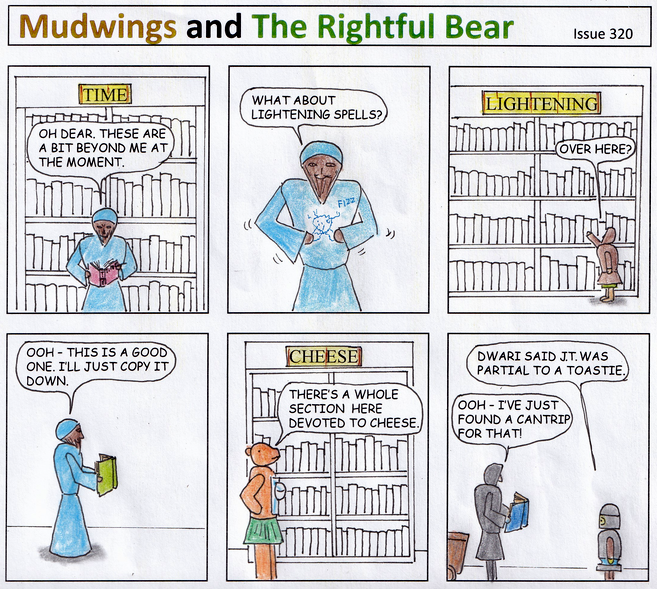 Mudwings and The Rightful Bear
Issue 320
TIME
OH DEAR. THESE ARE
A BIT BEYOND ME AT
THE MOMENT.
WHAT ABOUT
LIGHTENING SPELLS?
FIZZ
LIGHTENING
OVER HERE?
OOH - THIS IS A GOOD
ONE. I'LL JUST COPY IT
DOWN.
CHEESE
THERE'S A WHOLE
SECTION HERE
DEVOTED TO CHEESE.
DWARI SAID J.T. WAS
PARTIAL TO A TOASTIE.
OOH - I'VE JUST
FOUND A CANTRIP
FOR THAT!